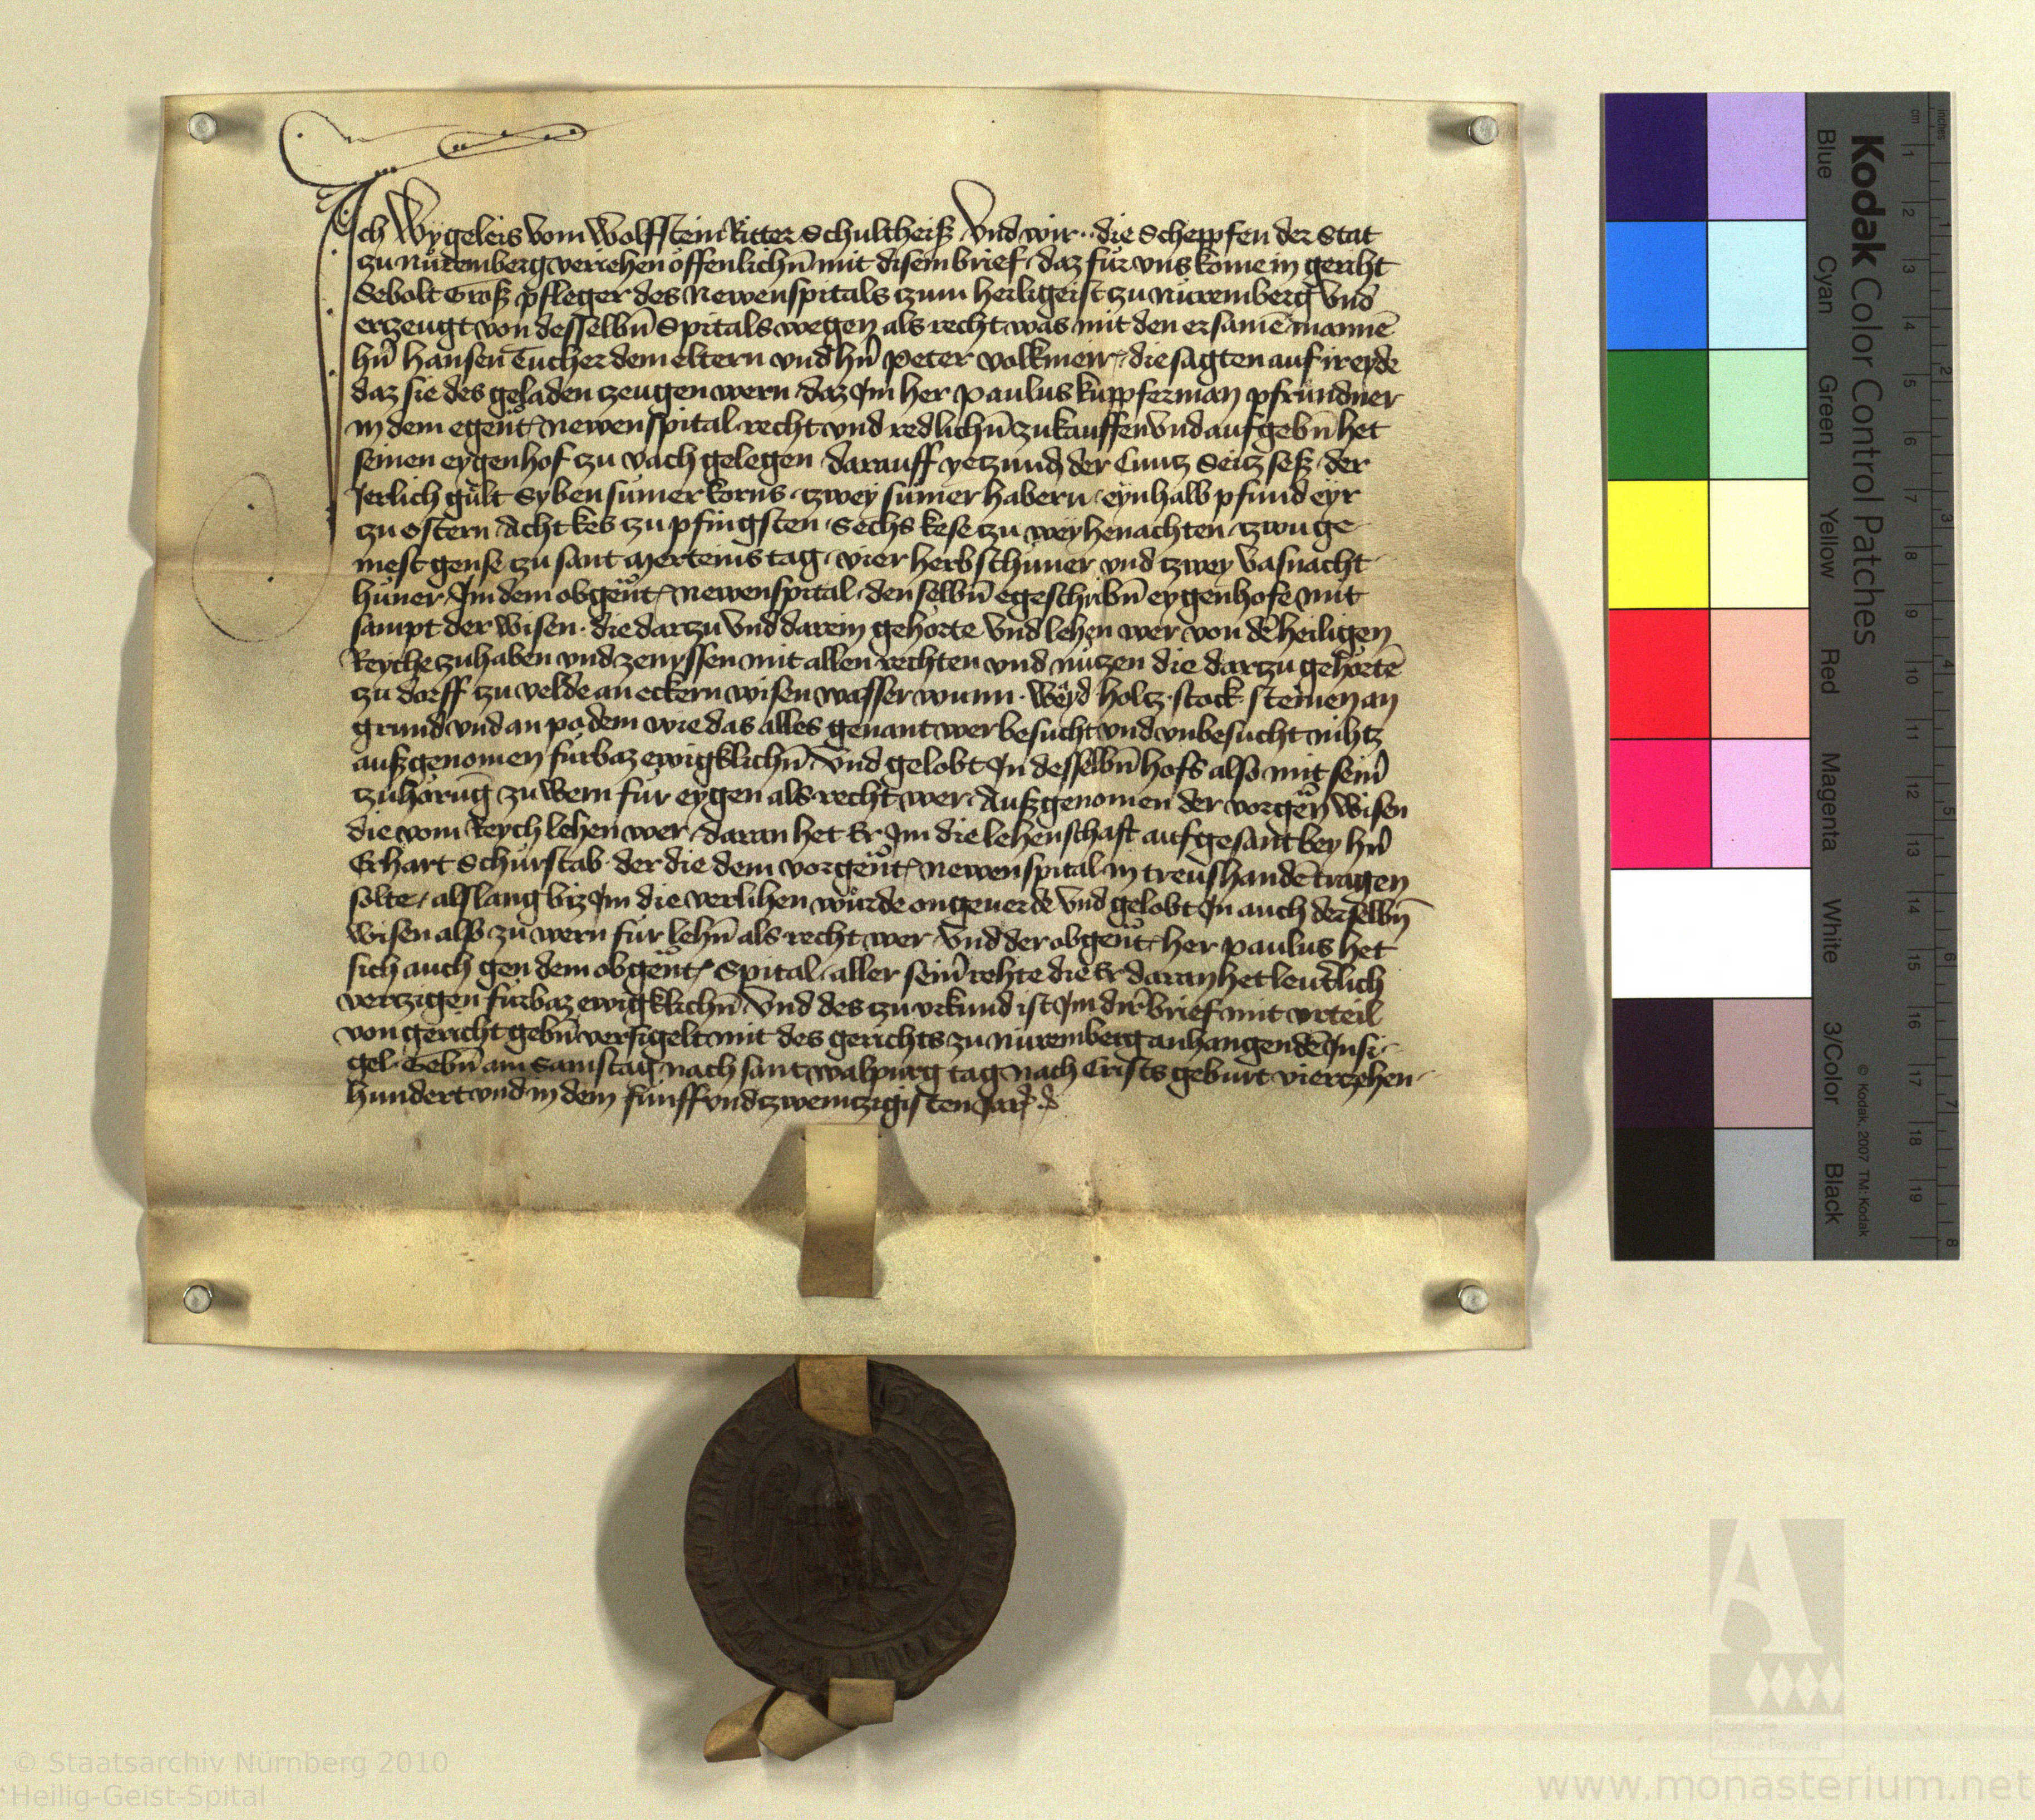 Ich Wygeleis vom Wolffstein Ritter Schultheiß Vnd wir ·· die Scheppfen der Stat
zu nůremberg veriehen offenlichn̄ mit disem brief · daz fůr vns kome in geriht
Sebolt Groß pfleger des Newenspitals zum heiligeist zu nůremberg Vnd
erzeugt von desselbn̄ Spitals wegen als recht was mit den ersamē mannē
hn̄ hansen Tucher dem eltern vnd hn̄ Peter volkmeir · die sagten auf ir eyde
daz sie des geladen zeugen wern daz Im her Paulus kupferman pfrundner
in dem egen̄t newen spital recht vnd redlichn̄ zu kauffen Vnd aufgebn̄ het
seinen eygenhof zu vach gelegen darauff yetzund der Cuntz Seitz seß · der
Jerlich gůlt Syben sumer korns · zwey sumer habern · eyn halb pfund eyr
zu ostern Acht kes zu pfingsten · Sechs kese zu weyhenachten · zwu ge
mest gense zu sant merteins tag · vier herbsthuner vnd zwey Vasnacht
hůner · Im dem obgen̄t newenspital · denselbn̄ egeschribn̄ eygenhofe mit
sampt der wisen · die darzu Vnd darein gehorte Vnd lehen wer von dē heiligen
Reyche zuhaben vnd zenyssen mit allen rechten vnd nůtzen die darzu gehortē
zu dorff zu velde an eckern wisen wasser wunn · weyd holtz · stock steinen an
grund vnd an podem wie das alles genant wer besucht vnd vnbesucht nihtz
außgenomen fůrbaz ewigklichn̄ Vnd gelobt In desselbn̄ hofs also mit sein̄
zuhorūg zu wern fůr eygen als recht wer · Außgenomen der vorgen̄ wisen
die vom Reych lehen wer · daran het Er Im die lehenschaft aufgesant bey hn̄
Erhart Schůrstab · der die dem vorgen̄t newenspital in treushandē tragen
solte · alslang biz Im die verlihen wůrde ongeuerde Vnd gelobt In auch derselbn̄
wisen also zu wern fůr lehn̄ als recht wer · Vnd der obgen̄t her Paulus het
sich auch gen dem obgen̄t Spital · aller sein̄ rehte die Er daran het leut̄lich
verzigen fůrbaz ewigklichn̄ Vnd des zu vrkund ist Im dir̄ brief mit vrteil
von gericht gebn̄ versigelt mit des gerichts zu nůremberg anhangendē Insi
gel · Gebn̄ am Samstag nach sant walpurg tag nach Crists geburt vierzehen
hundert vnd in dem fůnff vnd zweintzigisten Jar
Kodak Color Control Patches
Blue Cyan Green Yellow Red Magenta White 3/Color Black
© Kodak, 2007 TM: Kodak
cm 1 2 3 4 5 6 7 8 9 10 11 12 13 14 15 16 17 18 19
inches 1 2 3 4 5 6 7 8
© Staatsarchiv Nürnberg 2010
Heilig-Geist-Spital
www.monasterium.net